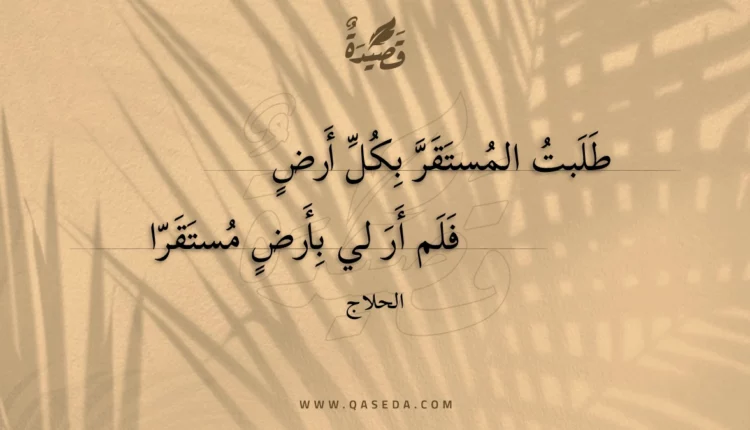 قَصِيدَةٌ
طَلَبتُ المُستَقَرَّ بِكُلِّ أَرضٍ
فَلَم أَرَ لي بِأَرضٍ مُستَقَرّا
الحلاج
WWW.QASEDA.COM